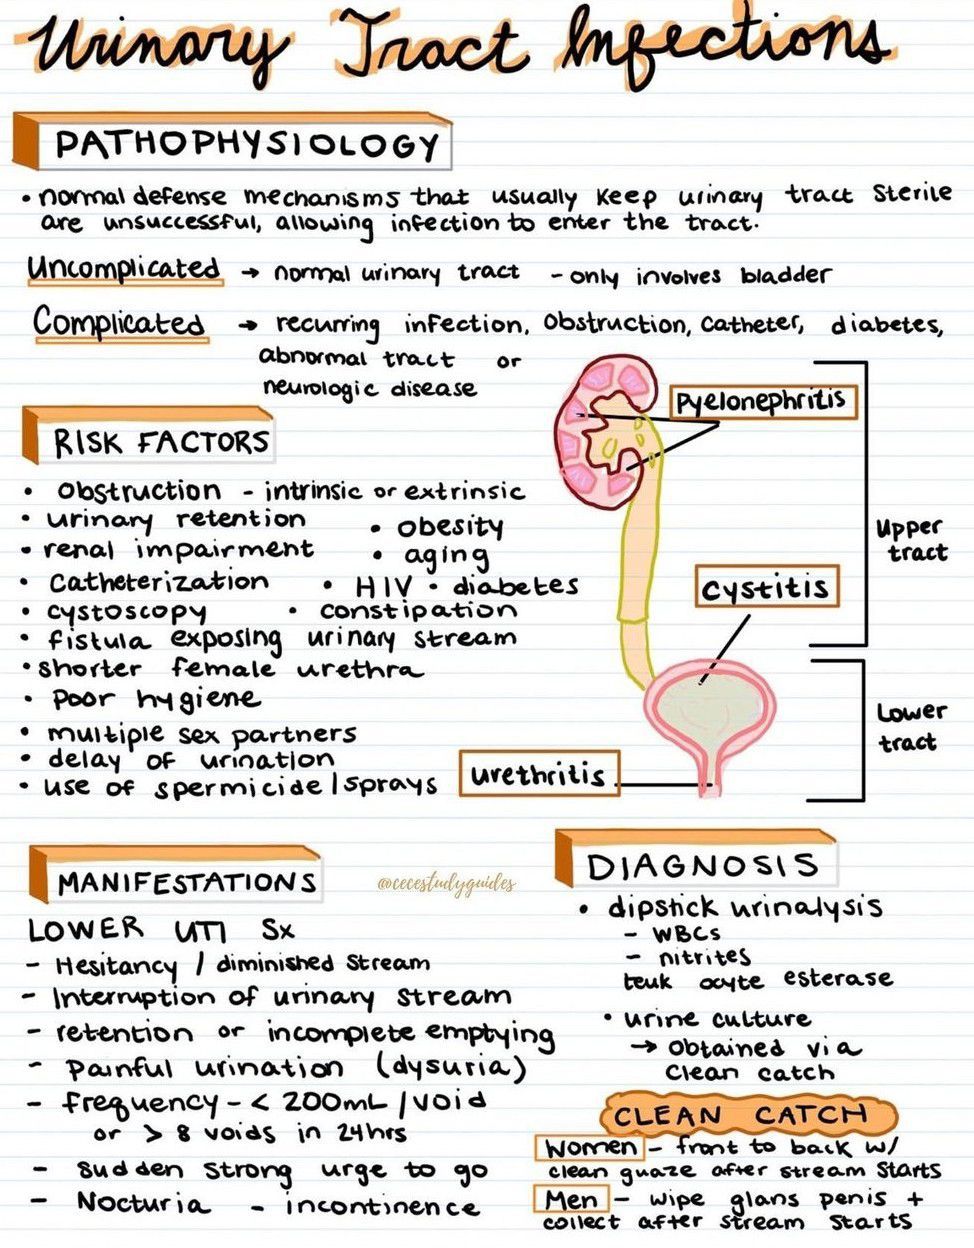 Urinary Tract Infections
PATHOPHYSIOLOGY
• normal defense mechanisms that usually keep urinary tract sterile
are unsuccessful, allowing infection to enter the tract.
Uncomplicated → normal urinary tract - only involves bladder
Complicated → recurring infection, obstruction, catheter, diabetes,
abnormal tract or
neurologic disease
Pyelonephritis
Upper
tract
Cystitis
Lower
tract
urethritis
RISK FACTORS
• Obstruction - intrinsic or extrinsic
• urinary retention • obesity
• renal impairment • aging
• Catheterization • HIV • diabetes
• cystoscopy • constipation
• fistula exposing urinary stream
• shorter female urethra
• Poor hygiene
• multiple sex partners
• delay of urination
• use of spermicide/sprays
MANIFESTATIONS
@cecestudyguides
LOWER UTI Sx
- Hesitancy / diminished stream
- Interruption of urinary stream
- retention or incomplete emptying
- Painful urination (dysuria)
- frequency - < 200mL/void
or > 8 voids in 24hrs
- Sudden strong urge to go
- Nocturia - incontinence
DIAGNOSIS
• dipstick urinalysis
- WBCs
- nitrites
teuk ocyte esterase
• urine culture
→ Obtained via
clean catch
CLEAN CATCH
Women - front to back w/
clean guaze after stream starts
Men - wipe glans penis +
collect after stream starts